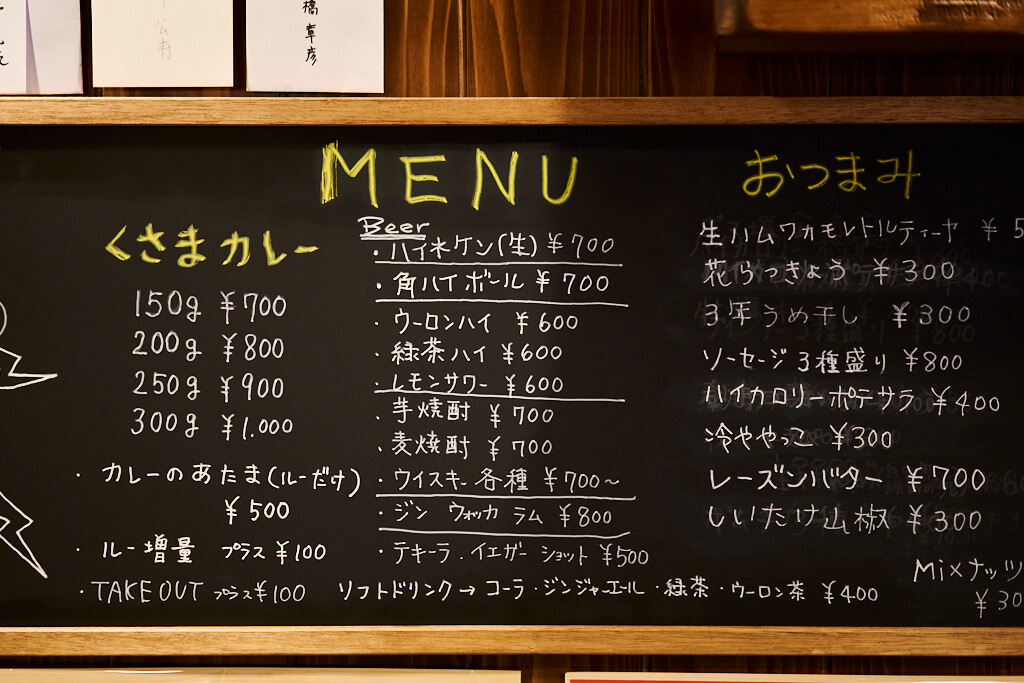 橋章彦
公寿
MENU
くさまカレー
150g ¥700
200g ¥800
250g ¥900
300g ¥1.000
・カレーのあたま(ルーだけ)
¥500
・ルー増量 プラス¥100
・TAKE OUT プラス¥100
Beer
・ハイネケン(生) ¥700
・角ハイボール ¥700
・ウーロンハイ ¥600
・緑茶ハイ ¥600
・レモンサワー ¥600
・芋焼酎 ¥700
・麦焼酎 ¥700
・ウイスキー各種 ¥700〜
・ジン ウォッカ ラム ¥800
・テキーラ.イエガー ショット ¥500
ソフトドリンク→コーラ・ジンジャーエール・緑茶・ウーロン茶 ¥400
おつまみ
生ハムワカモレトルティーヤ ¥5
花らっきょう ¥300
3年うめ干し ¥300
ソーセージ3種盛り ¥800
ハイカロリーポテサラ ¥400
冷ややっこ ¥300
レーズンバター ¥700
しいたけ山椒 ¥300
Mixナッツ
¥30